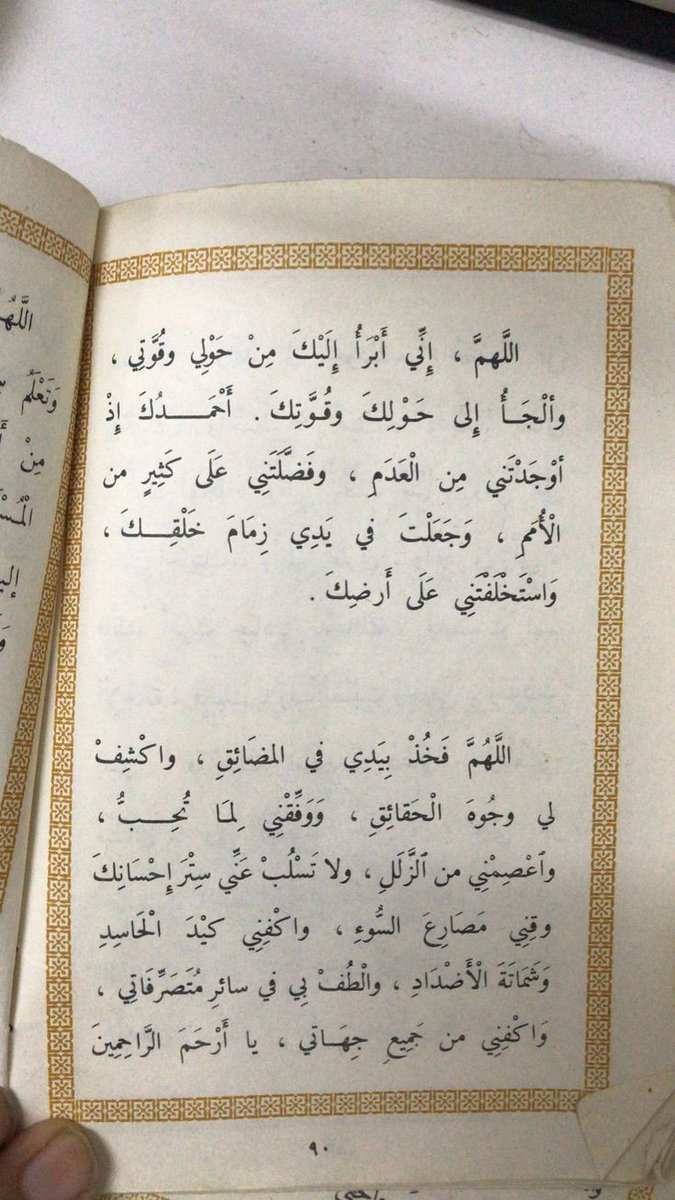 اللَّهمَّ ، إِنِّي أَبْرَأُ إِلَيْكَ مِنْ حَوْلِي وقُوَّتِي ،
وألْجَـأُ إِلى حَـوْلِكَ وقُـوَّتِكَ . أَحْمَـــدُكَ إِذْ
أوْجَدْتَني مِن الْعَدَمِ ، وفَضَّلَتَنِي عَلَى كَثِيرٍ من
الْأُمَمِ ، وَجَعَلْتَ في يَدِي زِمَامَ خَلْقِـــكَ ،
وَاسْتَخْلَفْتَنِي عَلَى أَرضِكَ .
اللَّهُمَّ فَخُذْ بِيَدِي في المضَائِقِ ، واكْشِفْ
لي وجُوهَ الْحَقائِقِ ، وَوَفِّقْنِي لِمَا تُحِـــبُّ ،
واَعْصِمْني من اَلزَّلَلِ ، ولا تَسْلُبْ عَنِّي سِتْرَ إِحْسَانِكَ
وقِنِي مَصَارِعَ السُّوءِ ، واكْفِنِي كَيْدَ الْحَاسِدِ
وَشَمَاتَةَ الْأَضْدَادِ ، والْطُفْ بِي في سائرِ مُتَصَرِّفَاتِي ،
وَاكْفِنِي من جَمِيعِ جِهَـاتي ، يا أَرْحَمَ الرَّاحِمِينَ
٩٠
وَتَعْلَم
مِنْ